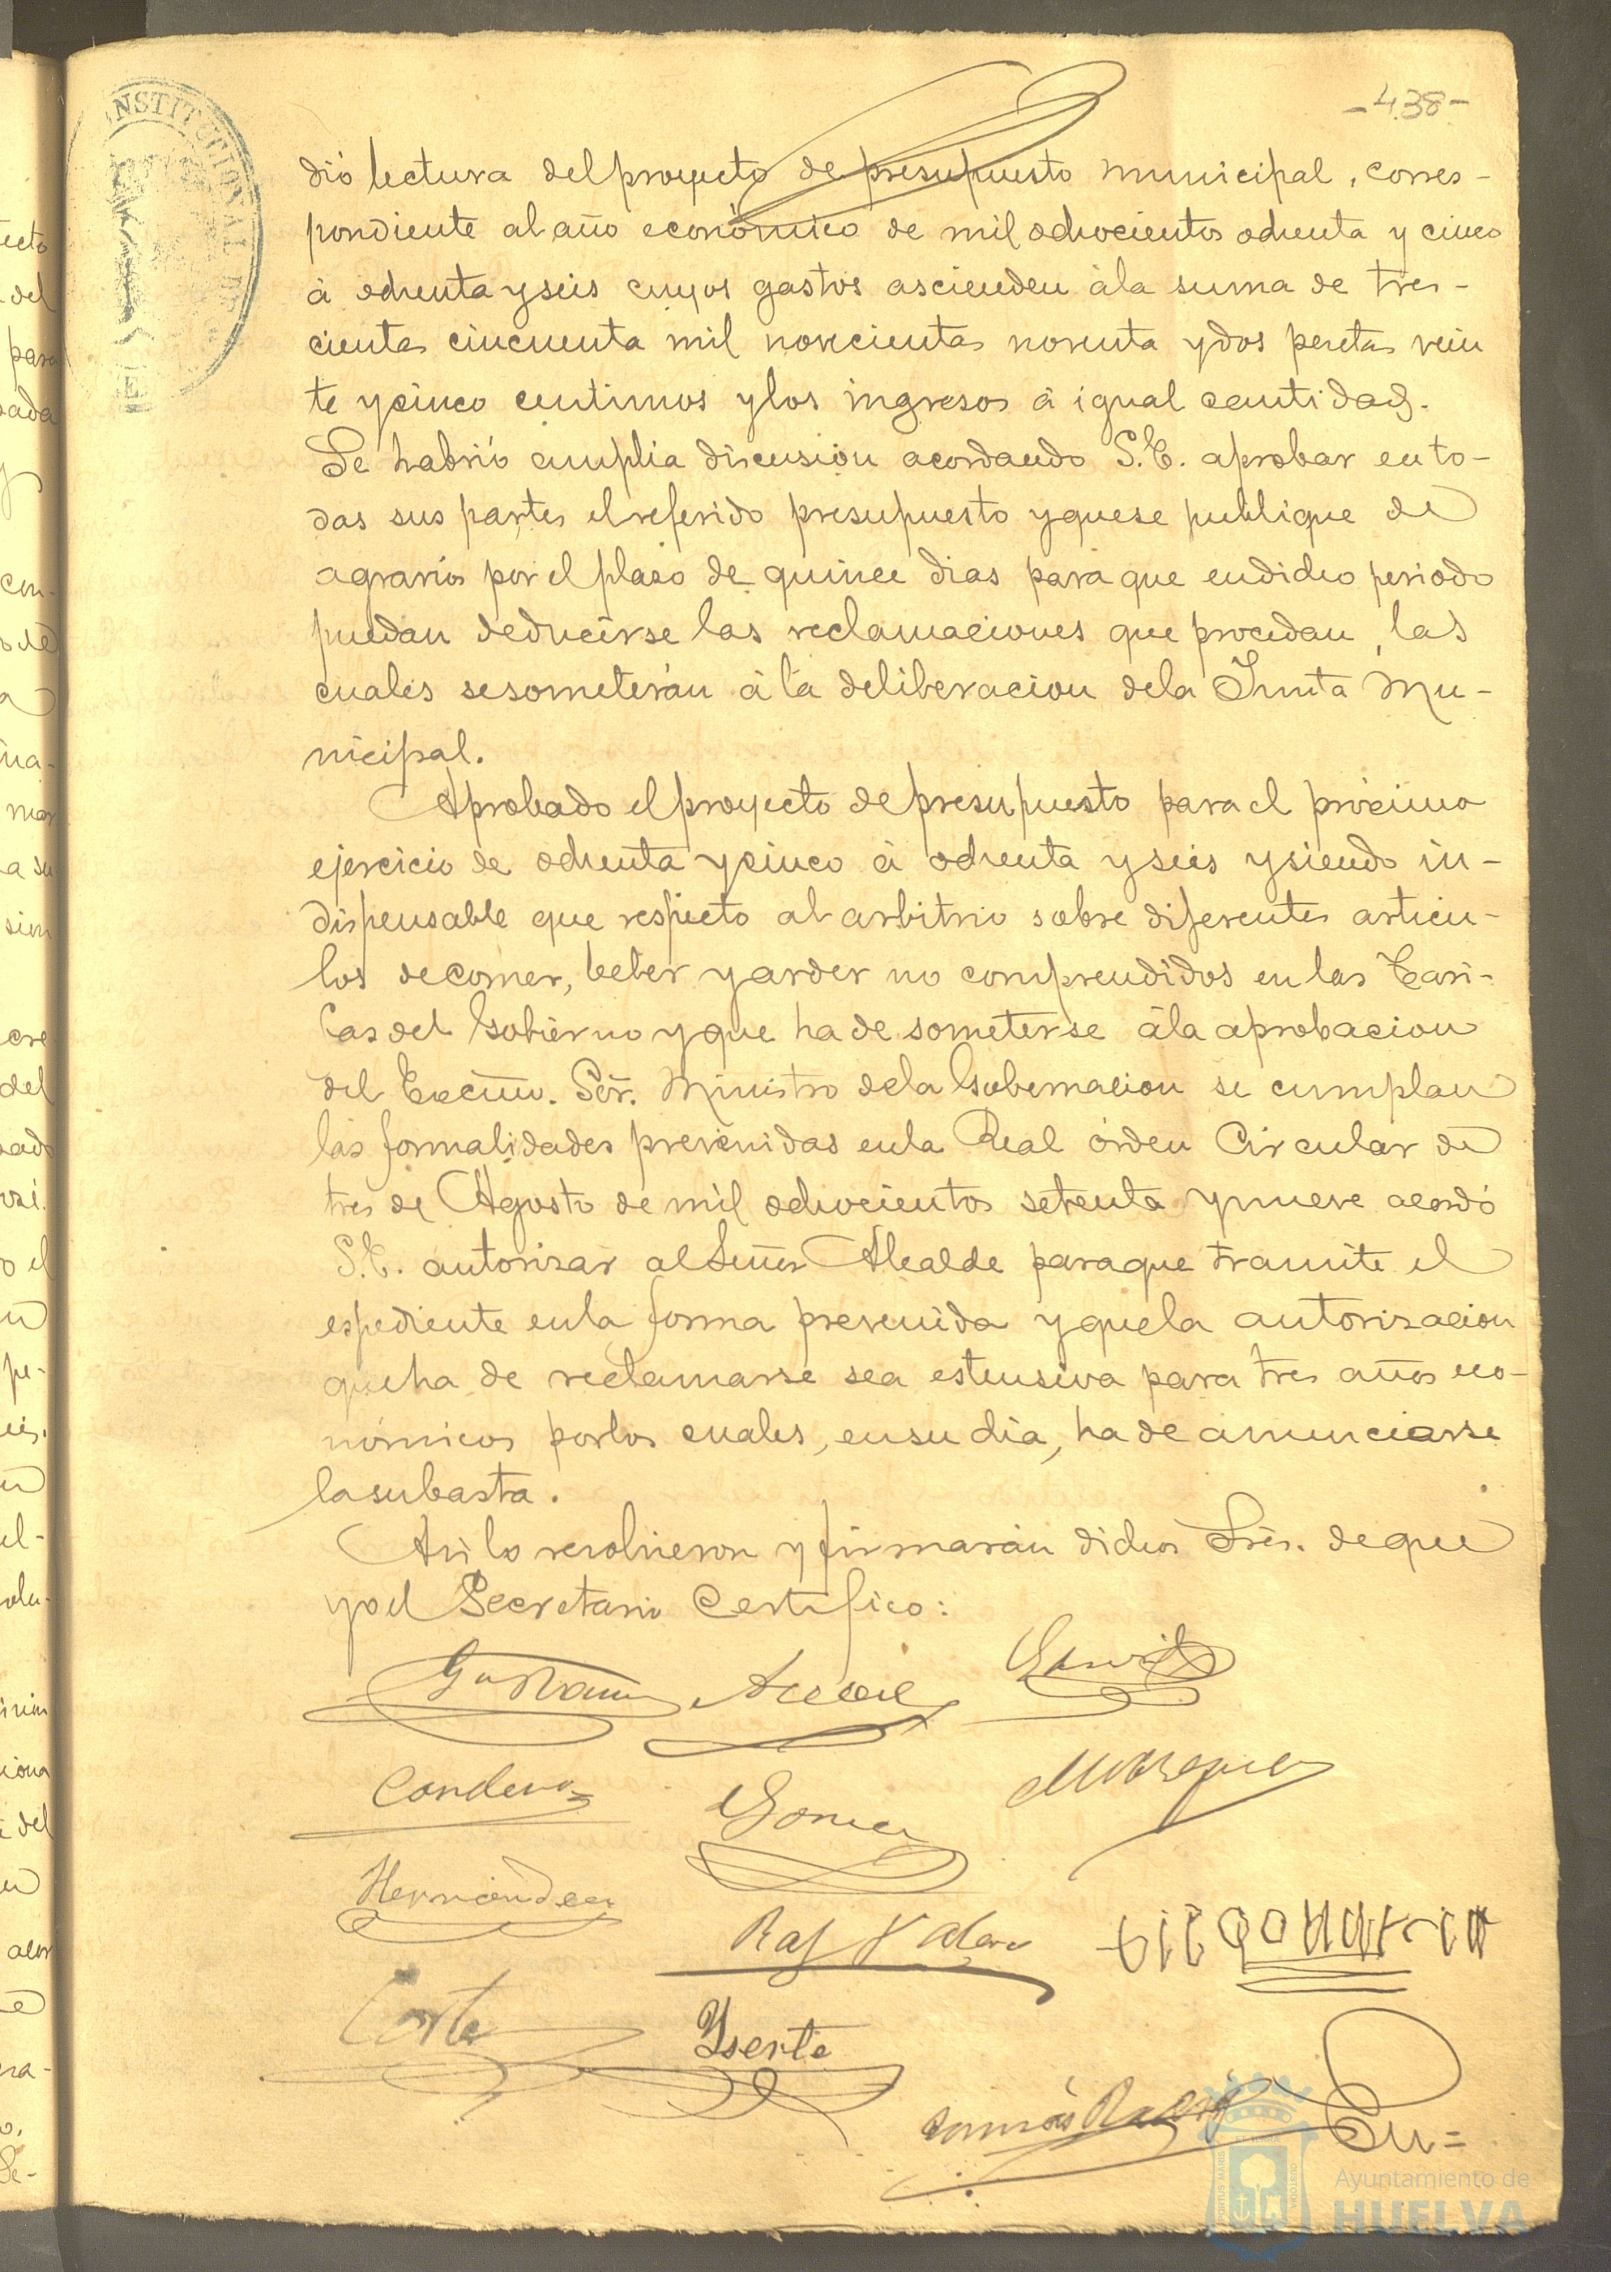 -438-
dió lectura del proyecto de presupuesto municipal, corres-
pondiente al año económico de mil ochocientos ochenta y cinco
á ochenta y seis cuyos gastos ascienden á la suma de tres-
cientas cincuenta mil novecientas noventa y dos pesetas vein
te y cinco centimos y los ingresos á igual cantidad.
Se habrió amplia discusion acordando S.E. aprobar en to-
das sus partes el referido presupuesto y que se publique de
agravios por el plazo de quince dias para que en dicho periodo
puedan deducirse las reclamaciones que procedan, las
cuales se someterán á la deliberacion de la Junta Mu-
nicipal.
Aprobado el proyecto de presupuesto para el prócimo
ejercicio de ochenta y cinco á ochenta y seis y siendo in-
dispensable que respecto al arbitrio sobre diferentes articu-
los de comer, beber y arder no comprendidos en las Tari-
fas del Gobierno y que ha de someterse á la aprobacion
del Excmo. Sór. Ministro de la Gobernacion se cumplan
las formalidades prevenidas en la Real órden Circular de
tres de Agosto de mil ochocientos setenta y nueve acordó
S.E. autorizar al Señor Alcalde para que tramite el
espediente en la forma prevenida y que la autorizacion
que ha de reclamarse sea estensiva para tres años eco-
nómicos por los cuales, en su dia, ha de anunciarse
la subasta.
Asi lo resolvieron y firmarán dichos Sres. de que
yo el Secretario Certifico:
Garcia
Cordero
Gomez
Hernandez
Raf
Corte
Yserte
Tomás
En=
Ayuntamiento de
HUELVA